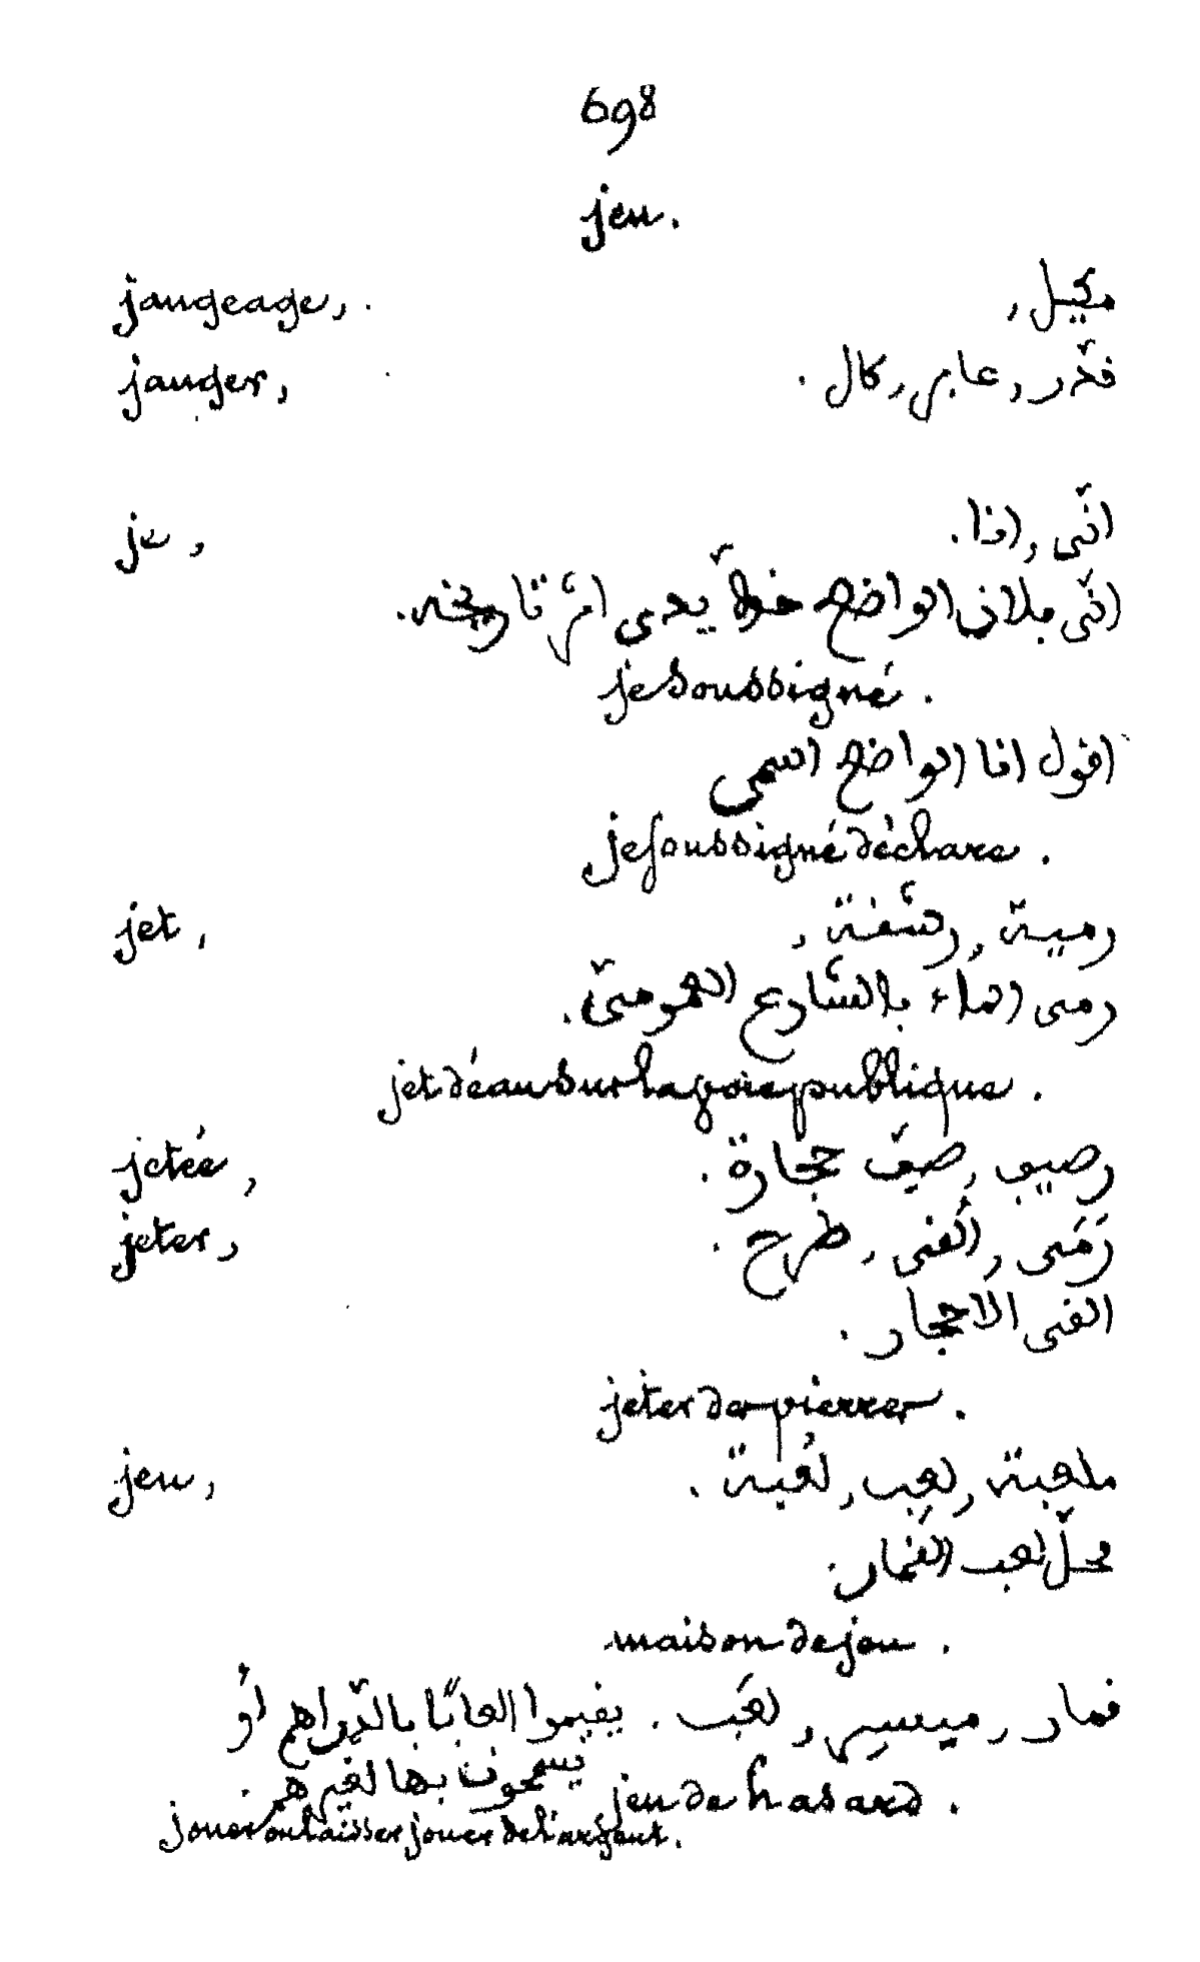 698
jeu.
jaugeage, مكيل,
jauger, قدّر, عاير, كال.
je, انّى, انا.
انّى فلان الواضع خطّ يدى اثر تاريخه.
je soussigné.
اقول انا الواضع اسمى
je soussigné déclare.
jet, رمية, رشقة,
رمى الماء بالشّارع العمومىّ.
jet d'eau sur la voie publique.
jetée, رصيف, صيّف حجارة.
jeter, رَمَى, القى, طرح.
القى الاحجار.
jeter des pierres.
jeu, ملعبة, لعب, لُعبة.
محلّ لعب القمار.
maison de jeu.
قمار, ميسر, لعب. يقيموا العابًا بالدّراهم أو
يسمحون بها لغيرهم.
jeu de hasard.
jouer ou laisser jouer de l'argent.